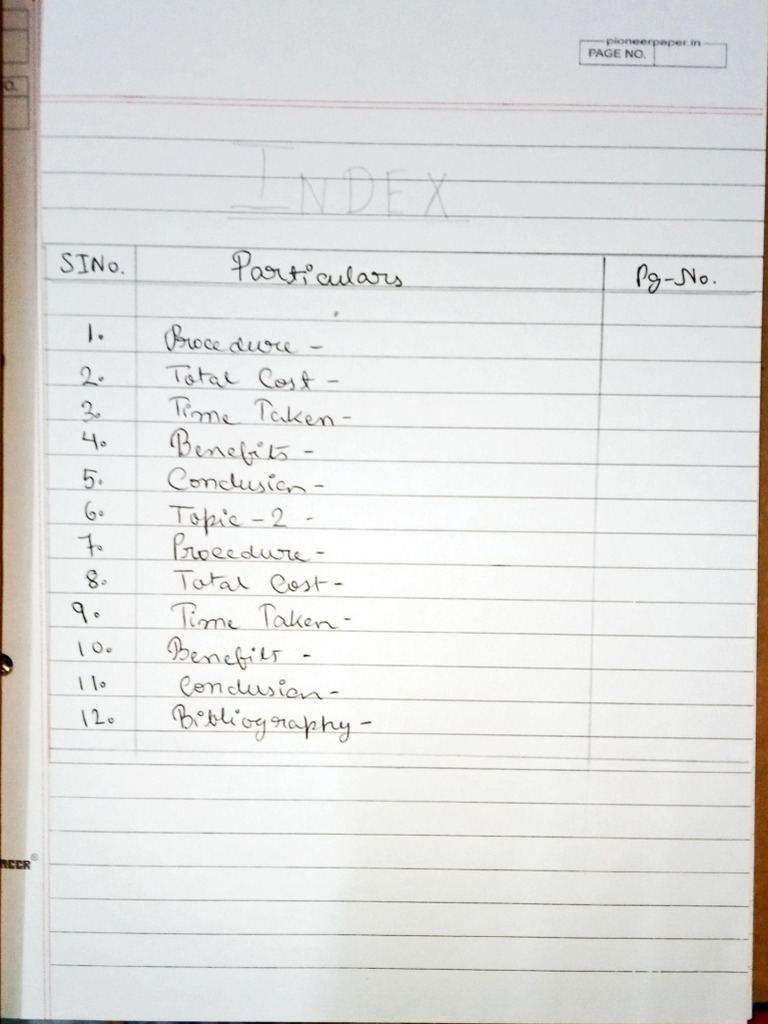 pioneerpaper.in
PAGE NO.
O.
INDEX
SINo. Particulars Pg-No.
1. Procedure -
2. Total Cost -
3. Time Taken -
4. Benefits -
5. Conclusion -
6. Topic - 2 -
7. Procedure -
8. Total Cost -
9. Time Taken -
10. Benefits -
11. Conclusion -
12. Bibliography -
NEER®